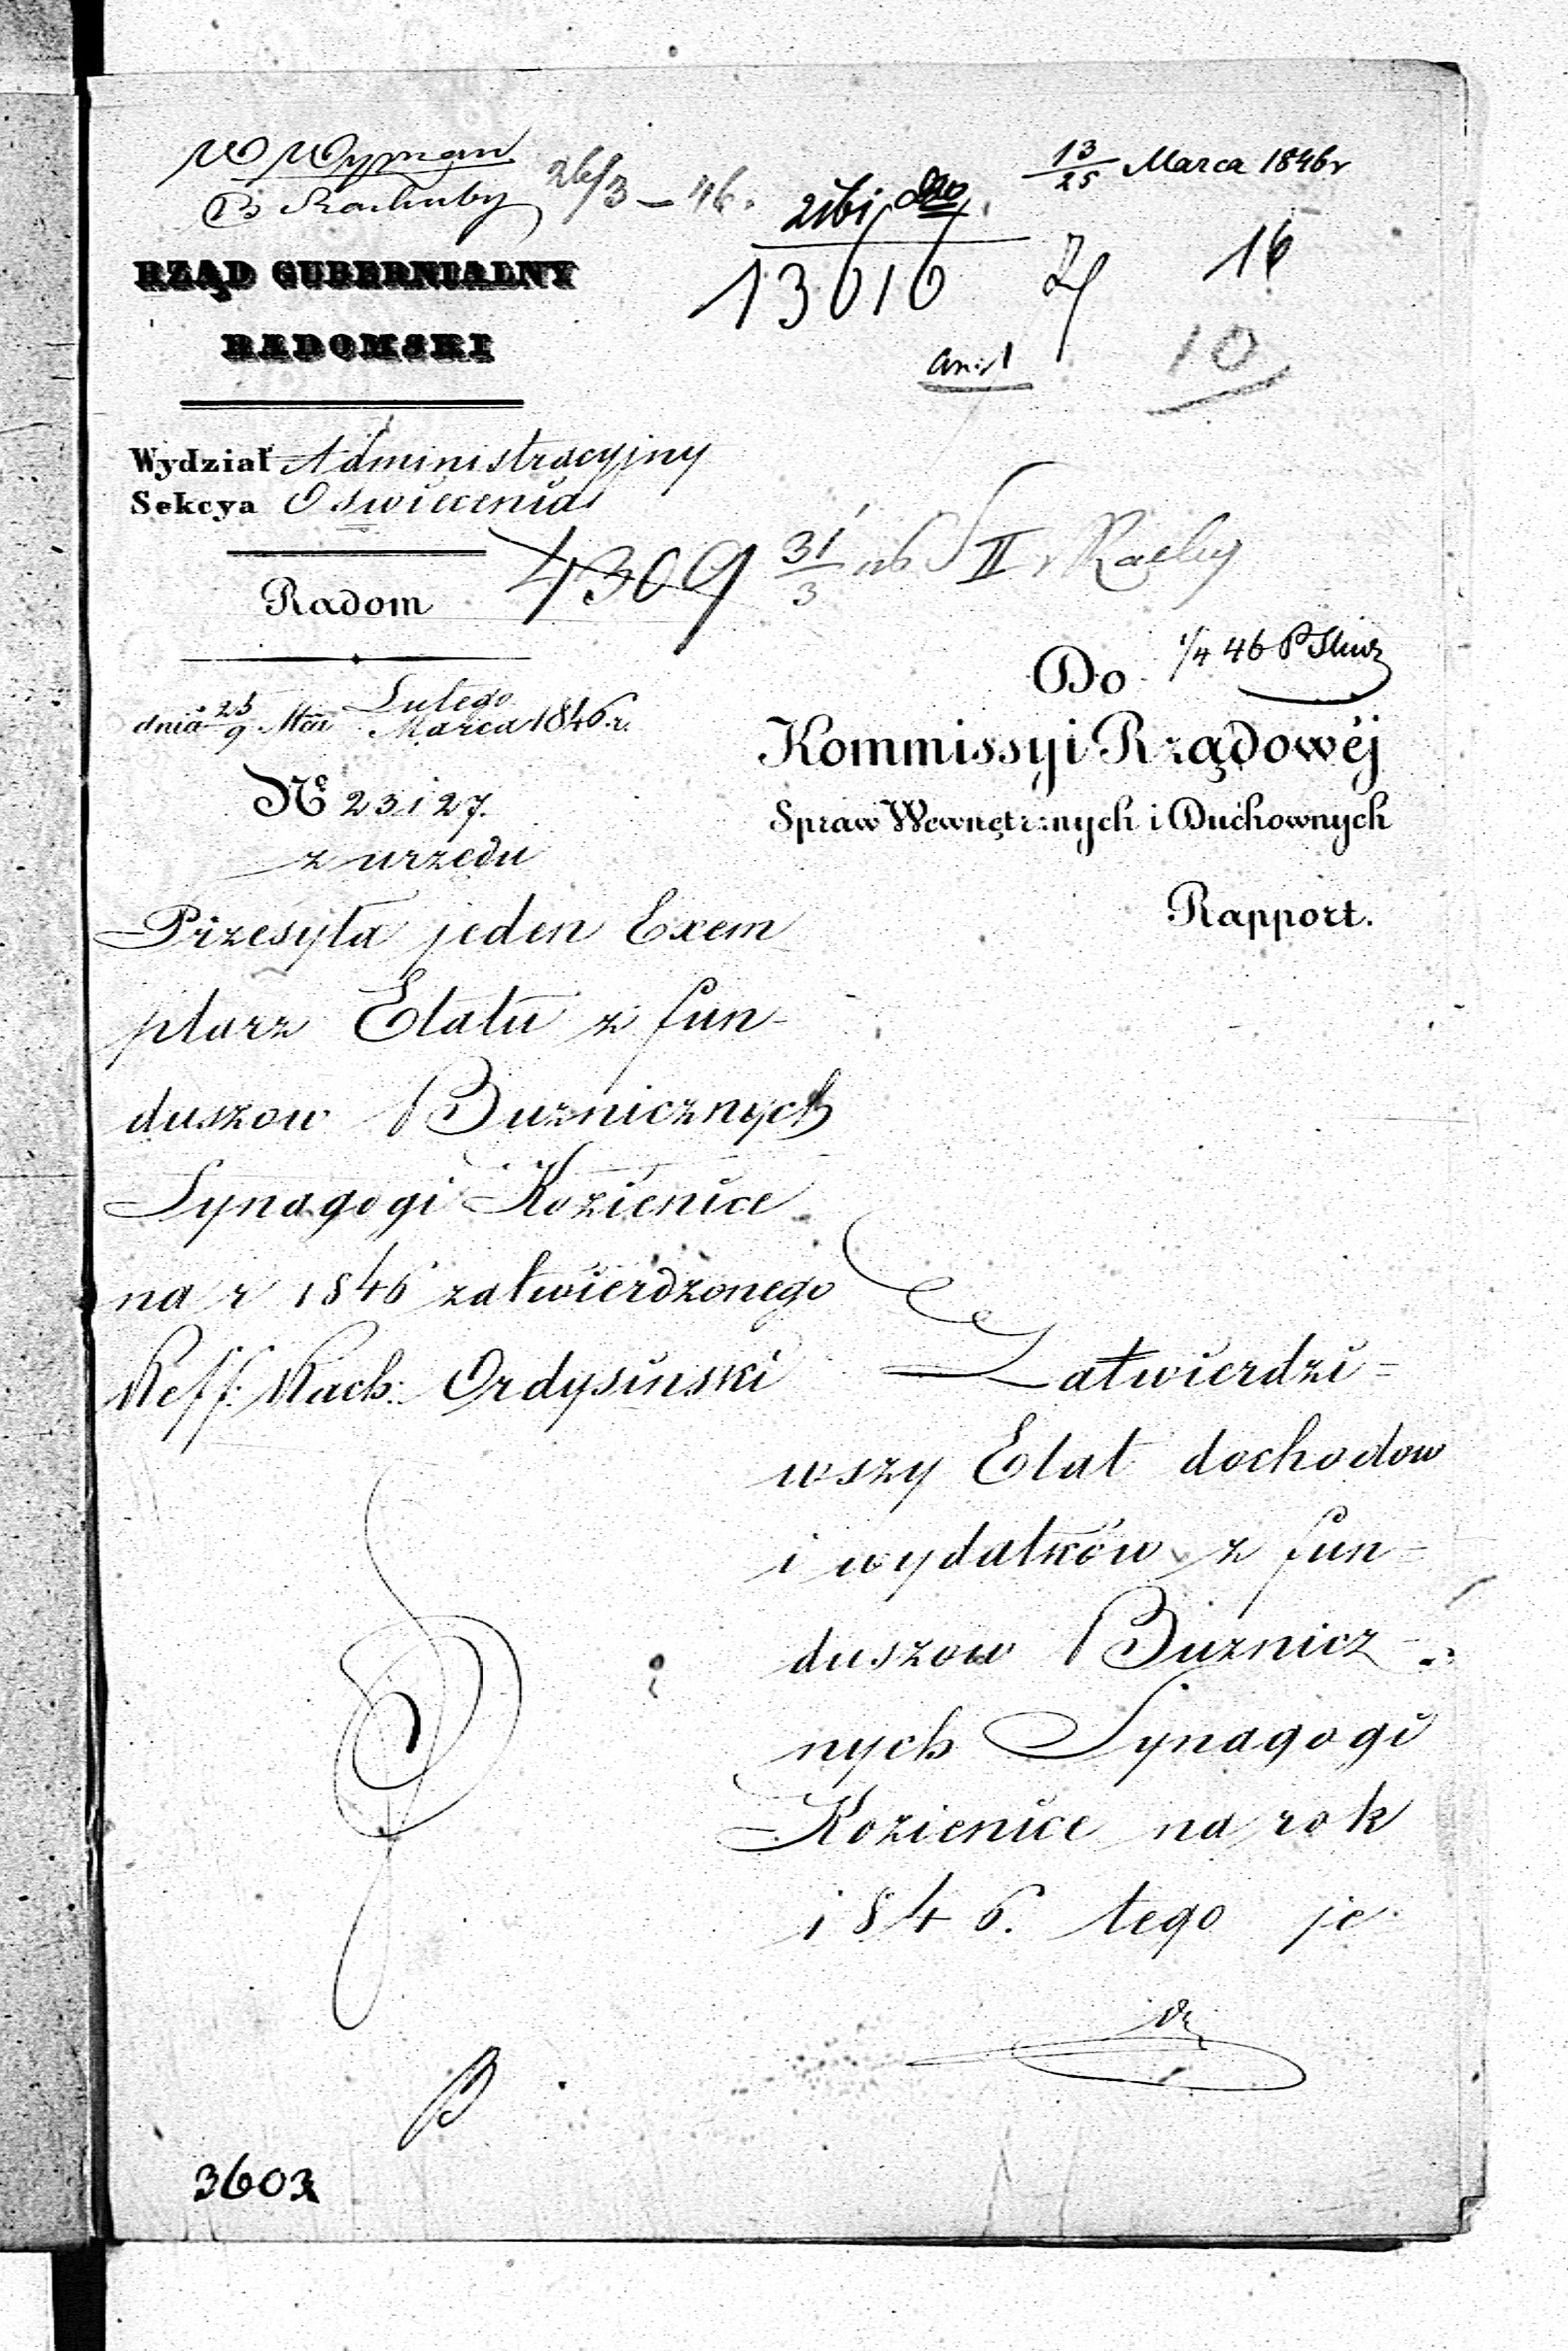 W Wyznań
B Rachuby
26/3 – 46.
13/25 Marca 1846 r
13616
16
10
RZĄD GUBERNIALNY
RADOMSKI
Wydział Administracyjny
Sekcya Oswiecenia
4309 31/3 II Rachy
Radom
Do 1/4 46
dnia 25/9 Lutego/Marca 1846 r.
Kommissyi Rządowéj
Spraw Wewnętrznych i Duchownych
Rapport.
№ 23127.
z urzędu
Przesyła jeden Exem
plarz Etatu z fun-
duszow Buznicznych
Synagogi Kozienice
na r 1846 zatwierdzonego
Reff. Rach: Ordysinski
Zatwierdzi=
wszy Etat dochodow
i wydatków z fun=
duszow Buznicz-
nych Synagogi
Kozienice na rok
1846. tego je
3603